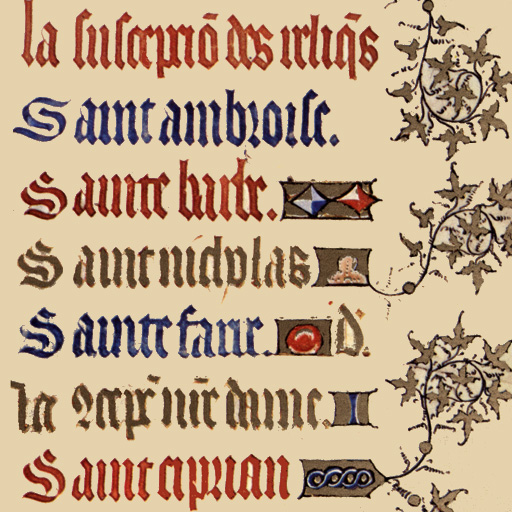 la suscepciō des reliq̄s
Saint ambroise.
Sainte barbe.
Saint nicholas
Sainte fare. id'.
la ꝯcepc̄ nr̄e dame.
Saint ciprian